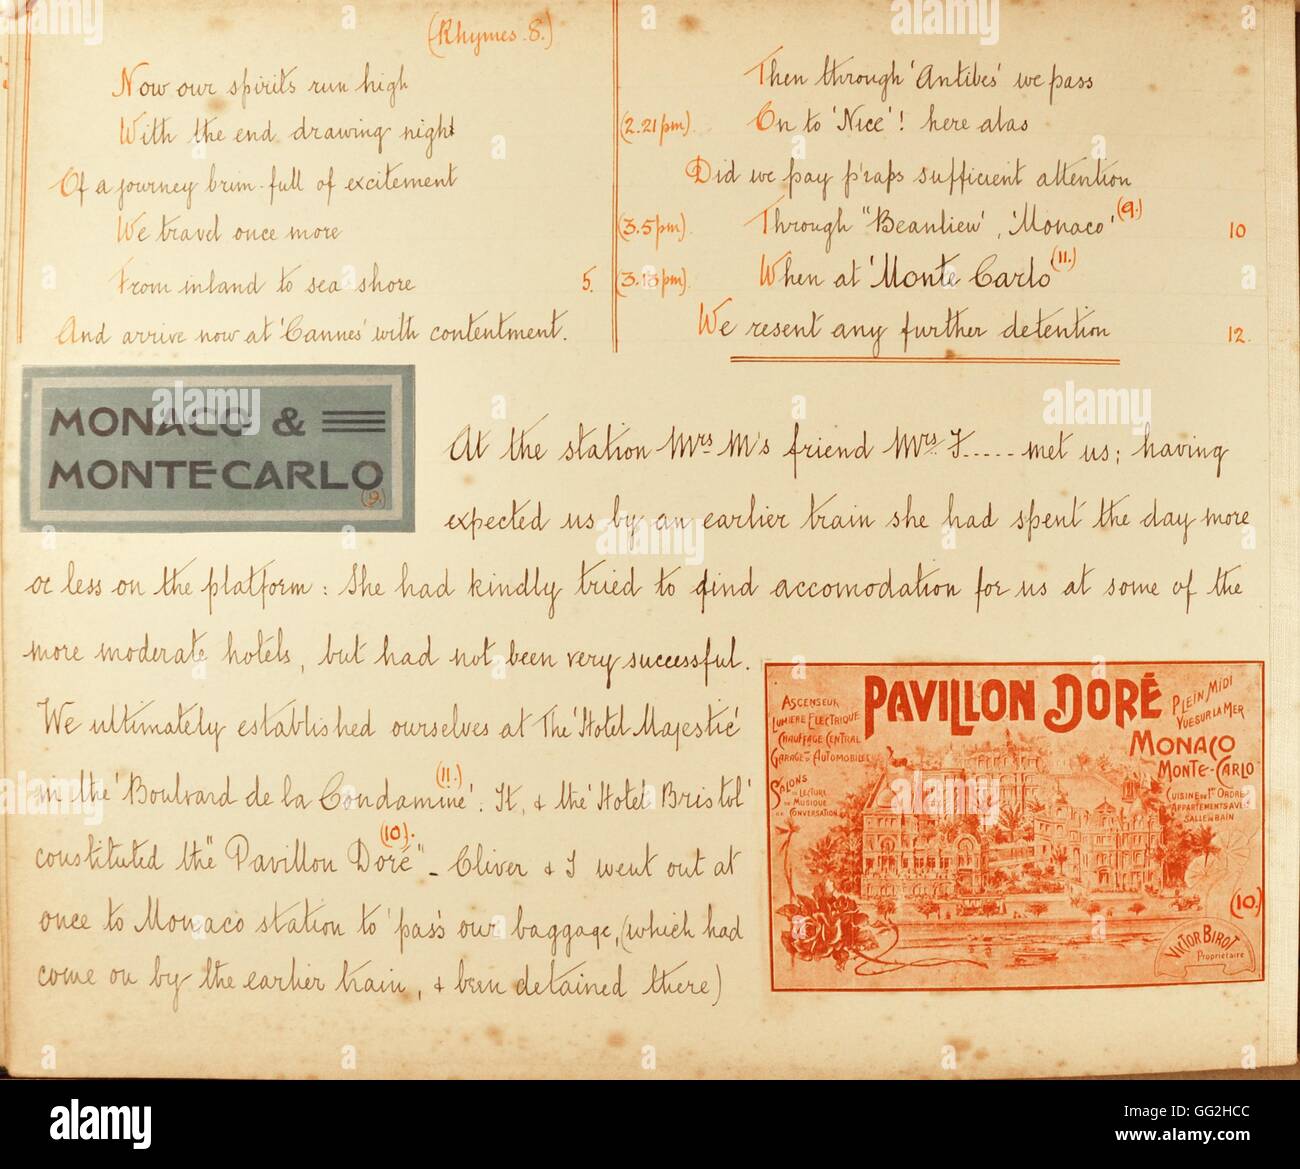 (Rhymes. 8.)
Now our spirits run high
With the end drawing night
Of a journey brim-full of excitement
We travel once more
From inland to sea shore 5.
And arrive now at 'Cannes' with contentment.
Then through 'Antibes' we pass
(2.21pm). On to 'Nice'! here alas
Did we pay p'raps sufficient attention
(3.5pm). Through "Beaulieu', 'Monaco' (9.) 10
(3.13pm). When at 'Monte Carlo' (11.)
We resent any further detention 12.
MONACO &
MONTE CARLO
(9.)
At the station Mrs M's friend Mrs. F..... met us; having
expected us by an earlier train she had spent the day more
or less on the platform: She had kindly tried to find accomodation for us at some of the
more moderate hotels, but had not been very successful.
We ultimately established ourselves at The 'Hotel Majestic'
in the 'Boulvard de la Condamine' (11.). It, & the 'Hotel Bristol'
constituted the "Pavillon Doré" (10). - Oliver & I went out at
once to Monaco station to 'pass' our baggage, (which had
come on by the earlier train, & been detained there)
PAVILLON DORÉ
ASCENSEUR
LUMIÈRE ELECTRIQUE
CHAUFFAGE CENTRAL
GARAGE D'AUTOMOBILES
SALONS
DE LECTURE
DE MUSIQUE
DE CONVERSATION
PLEIN MIDI
VUE SUR LA MER
MONACO
MONTE-CARLO
CUISINE DE 1ER ORDRE
APPARTEMENTS AVEC
SALLE DE BAIN
(10.)
VICTOR BIROT
Propriétaire
alamy
alamy
Image ID: GG2HCC
www.alamy.com